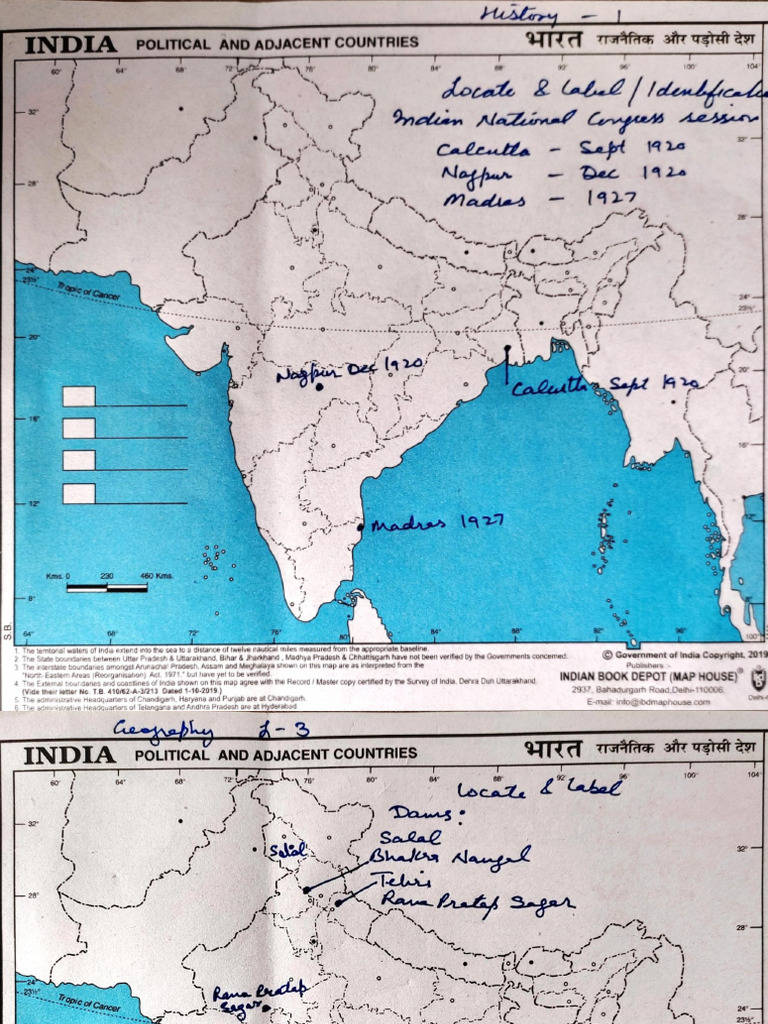 History - 1
INDIA POLITICAL AND ADJACENT COUNTRIES भारत राजनैतिक और पड़ोसी देश
60° 64° 68° 72° 76° 80° 84° 88° 92° 96° 100° 104°
Locate & Label / Identification
Indian National Congress session
Calcutta - Sept 1920
Nagpur - Dec 1920
Madras - 1927
32°
28° 28°
24° 24°
23½° 23½°
Tropic of Cancer
20° 20°
Nagpur Dec 1920
Calcutta Sept 1920
16° 16°
12° 12°
Madras 1927
Kms. 0 230 460 Kms.
8° 8°
64° 68° 72° 76° 80° 84° 88° 92° 96° 100°
S.B.
1. The territorial waters of India extend into the sea to a distance of twelve nautical miles measured from the appropriate baseline.
2. The State boundaries between Uttar Pradesh & Uttarakhand, Bihar & Jharkhand, Madhya Pradesh & Chhattisgarh have not been verified by the Governments concerned.
3. The interstate boundaries amongst Arunachal Pradesh, Assam and Meghalaya shown on this map are as interpreted from the
"North-Eastern Areas (Reorganisation) Act. 1971," but have yet to be verified.
4. The External boundaries and coastlines of India shown on this map agree with the Record / Master copy certified by the Survey of India, Dehra Dun Uttarakhand.
(Vide their letter No. T.B. 410/62-A-3/213 Dated 1-10-2019.)
5. The administrative Headquarters of Chandigarh, Haryana and Punjab are at Chandigarh.
6. The administrative Headquarters of Telangana and Andhra Pradesh are at Hyderabad.
© Government of India Copyright, 2019
Publishers :-
INDIAN BOOK DEPOT (MAP HOUSE)®
2937, Bahadurgarh Road, Delhi-110006.
E-mail: info@ibdmaphouse.com
Geography L-3
INDIA POLITICAL AND ADJACENT COUNTRIES भारत राजनैतिक और पड़ोसी देश
60° 64° 68° 72° 76° 80° 84° 88° 92° 96° 100° 104°
Locate & Label
Dams:
32° 32°
Salal
Salal
Bhakra Nangal
Tehri
28° 28°
Rana Pratap Sagar
24° 24°
23½°
Rana Pratap
Sagar
Tropic of Cancer